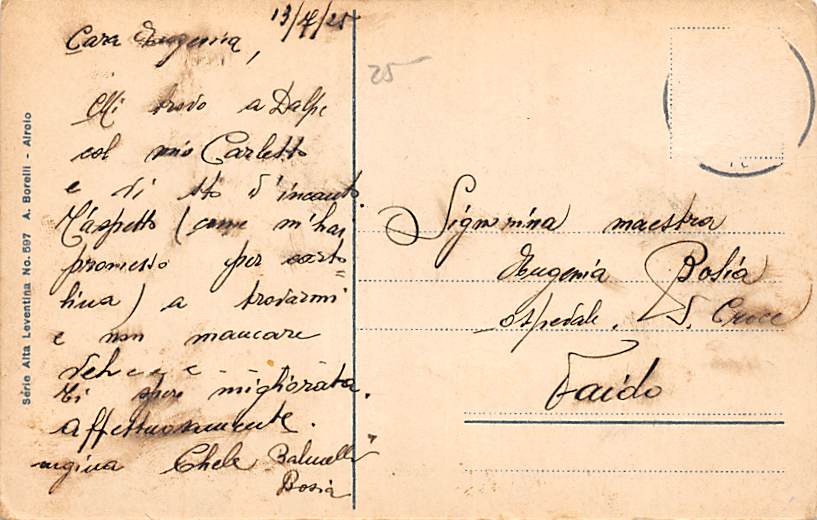 13/7/25
Cara Eugenia,
Mi trovo a Dalpe
col mio Carletto
e vi sto d'incanto.
T'aspetto (come m'hai
promesso per carto=
lina) a trovarmi
e non mancare
veh - - -
Ti spero migliorata.
Affettuosamente.
cugina Chele
Bosia
25
Signorina maestra
Eugenia Bosia
ospedale. S. Croce
Faido
Série Alta Leventina No. 597 A. Borelli - Airolo